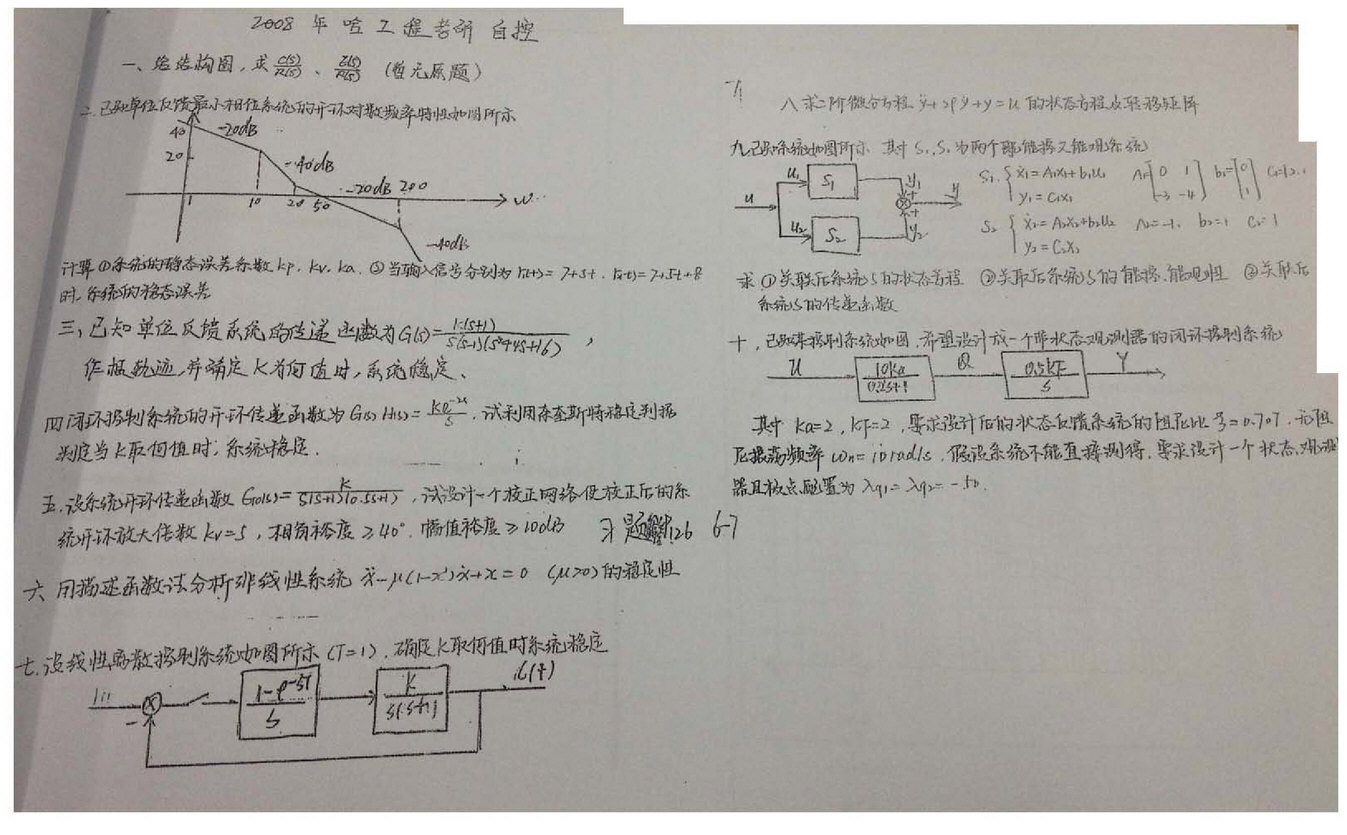 2008年哈工程考研 自控
一、给结构图,求C(s)/R(s)、E(s)/R(s) (暂无原题)
二.已知单位反馈最小相位系统的开环对数频率特性如图所示
40
-20dB
20
-40dB
-20dB 200
1 10 20 50
w
-40dB
计算①系统的静态误差系数kp,kv,ka.②当输入信号分别为
时,系统的稳态误差
三,已知单位反馈系统的传递函数为G(s)=k(s+1)/s(s-1)(s²+4s+16),
作根轨迹,并确定K为何值时,系统稳定、
四闭环控制系统的开环传递函数为G(s)H(s)= /s.试利用奈奎斯特稳定判据
判定当k取何值时,系统稳定.
五.设系统开环传递函数G0(s)=k/s(s+1)(0.5s+1),试设计一个校正网络使校正后的系
统开环放大倍数kv=5,相角裕度≥40°.幅值裕度≥10dB 习题 126 6-7
六 用描述函数法分析非线性系统ẍ-μ(1-x²)ẋ+x=0 (μ>0)的稳定性
七.设线性离散控制系统如图所示(T=1),确定k取何值时系统稳定
- (1-e^-sT)/s k/s(s+1) c(t)
八 求二阶微分方程 ÿ+2ρẏ+y=u的状态方程及转移矩阵
九.已知系统如图所示 其中S1,S2为两个既能控又能观系统
u u1 S1 y1 y
u2 S2 y2
S1 { ẋ1=A1x1+b1u1 A1=[0 1; -3 -4] b1=[0; 1]
y1=C1x1
S2 { ẋ2=A2x2+b2u2 A2=-1, b2=1 C2=1
y2=C2x2
求①并联后系统S的状态方程 ②并联后系统S的能控、能观性 ③并联后
系统S的传递函数
十,已知被控制系统如图.希望设计成一个带状态观测器的闭环控制系统
U 10ka/ Q 0.5kF/s Y
其中ka=2,kF=2,要求设计后的状态反馈系统的阻尼比ξ=0.707,无阻
尼振荡频率ωn=10rad/s.假设系统不能直接测得,要求设计一个状态观测
器且极点配置为λg1=λg2=-50.